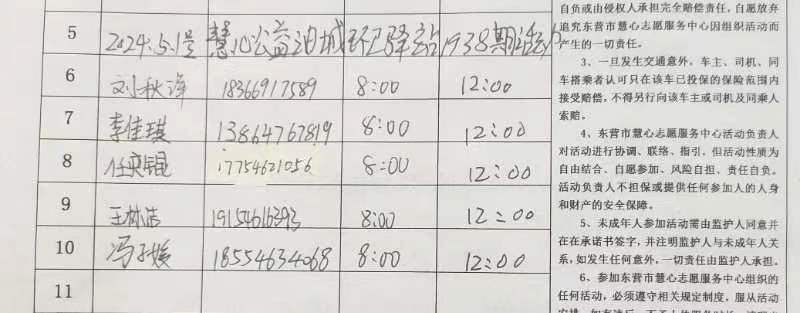 5 2024.5.1号 慧心公益油城环卫驿站1938期活动
6 刘秋萍 18366917589 8:00 12:00
7 李佳琪 13864767819 8:00 12:00
8 任奕锟 17754621056 8:00 12:00
9 王林洁 19154616393 8:00 12:00
10 冯子媛 18554634068 8:00 12:00
11
自负或由侵权人承担完全赔偿责任,自愿放弃
追究东营市慧心志愿服务中心因组织活动而
产生的一切责任。
3、一旦发生交通意外,车主、司机、同
车搭乘者认可只在该车已投保的保险范围内
接受赔偿,不得另行向该车主或司机及同乘人
索赔。
4、东营市慧心志愿服务中心活动负责人
对活动进行协调、联络、指引,但活动性质为
自由结合、自愿参加、风险自担、责任自负。
活动负责人不担保或提供任何参加人的人身
和财产的安全保障。
5、未成年人参加活动需由监护人同意并
在在承诺书签字,并注明监护人与未成年人关
系,如发生任何意外,一切责任由监护人承担。
6、参加东营市慧心志愿服务中心组织的
任何活动,必须遵守相关规定制度,服从活动